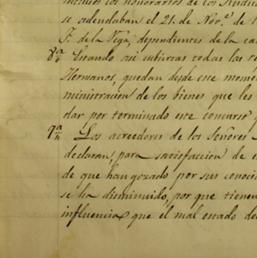 incluso los honorarios de los Sindic
se adeudaban el 21. de Nov.e de 1
F. de la Vega, dependientes de la ca
8a Siendo asi cubiertas todas las re
Hermanos, quedan desde ese mome
ministracion de los bienes que les
dar por terminado este concurso y
9a Los acreedores de los Señores
declaran, para satisfaccion de e
de que han gozado por sus conoci
se ha disminuido, por que tienen
influencia que el mal estado de